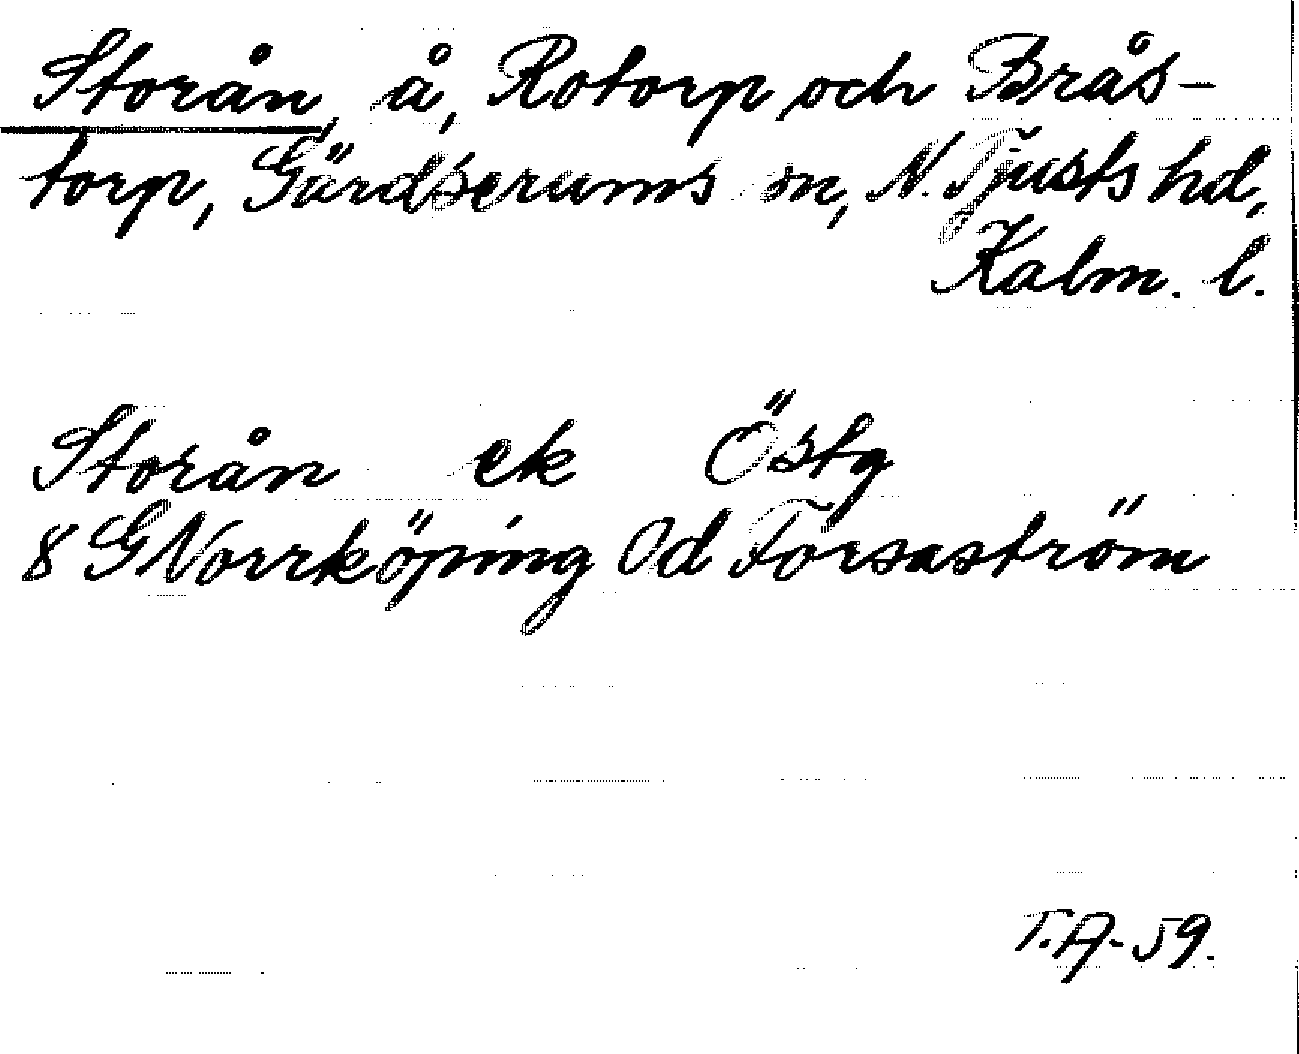 Storån, å, Rotorp och Brås-
torp, Gärdserums sn, N. Tjusts hd,
Kalm. l.
Storån ek Östg
8 G Norrköping 0d Forsaström
T.A-59.